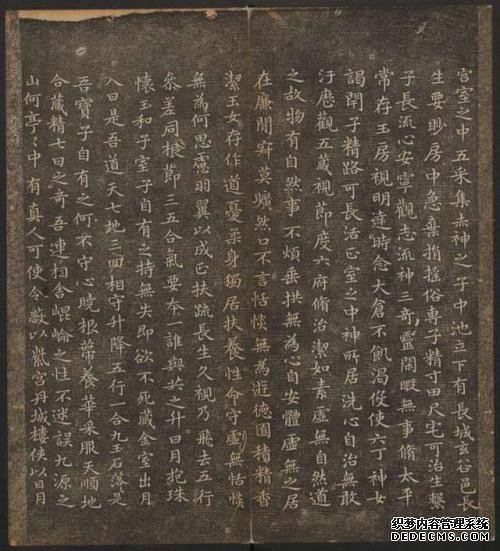 宮室之中五采集赤神之子中池立下有長城玄谷邑長
生要眇房中急棄捐搖俗專子精寸田尺宅可治生繫
子長流心安寧觀志流神三奇靈閑暇無事脩太平
常存玉房視明達時念大倉不飢渴役使六丁神女
謁閉子精路可長活正室之中神所居洗心自治無敢
汙歷觀五藏視節度六府脩治潔如素虛無自然道
之故物有自然事不煩垂拱無為心自安體虛無之居
在廉間寂莫曠然口不言恬惔無為遊德園積精香
潔玉女存作道憂柔身獨居扶養性命守虛無恬惔
無為何思慮羽翼以成正扶疏長生久視乃飛去五行
參差同根節三五合氣要本一誰與共之升日月抱珠
懷玉和子室子自有之持無失即欲不死藏金室出月
入日是吾道天七地三回相守升降五行一合九玉石落是
吾寶子自有之何不守心曉根蒂養華采服天順地
合藏精七日之奇吾連相舍崐崘之性不迷誤九源之
山何亭〻中有真人可使令蔽以紫宮丹城樓俠以日月
织梦内容管理系统
DEDECMS.COM